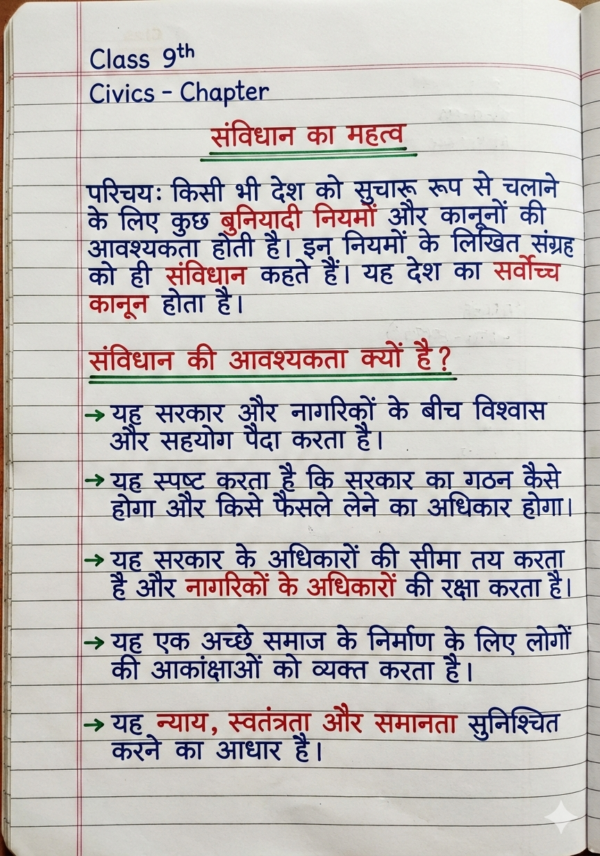 Class 9th
Civics - Chapter
संविधान का महत्व
परिचय: किसी भी देश को सुचारू रूप से चलाने
के लिए कुछ बुनियादी नियमों और कानूनों की
आवश्यकता होती है। इन नियमों के लिखित संग्रह
को ही संविधान कहते हैं। यह देश का सर्वोच्च
कानून होता है।
संविधान की आवश्यकता क्यों है?
→ यह सरकार और नागरिकों के बीच विश्वास
और सहयोग पैदा करता है।
→ यह स्पष्ट करता है कि सरकार का गठन कैसे
होगा और किसे फैसले लेने का अधिकार होगा।
→ यह सरकार के अधिकारों की सीमा तय करता
है और नागरिकों के अधिकारों की रक्षा करता है।
→ यह एक अच्छे समाज के निर्माण के लिए लोगों
की आकांक्षाओं को व्यक्त करता है।
→ यह न्याय, स्वतंत्रता और समानता सुनिश्चित
करने का आधार है।